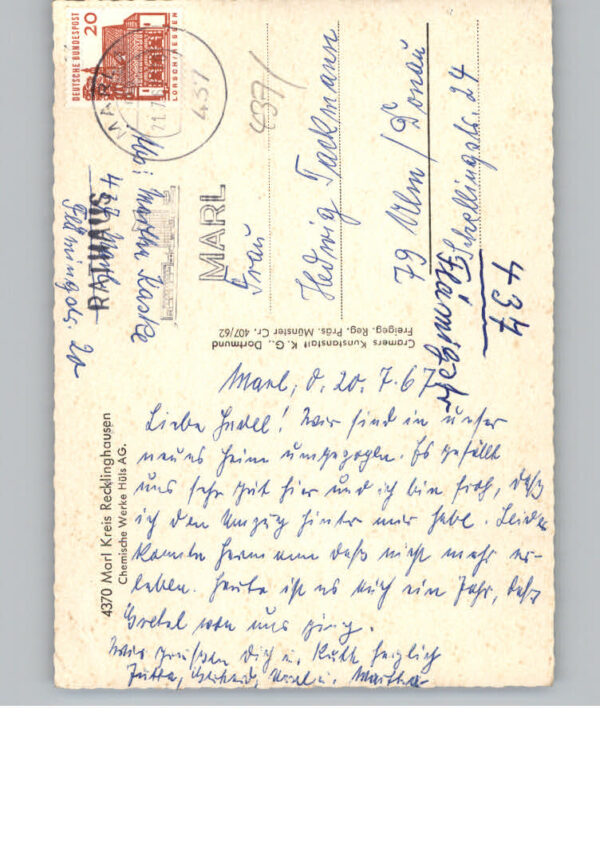 DEUTSCHE BUNDESPOST
20
LORSCH/HESSEN
MARL
21.7
437
4371
RATHAUS
MARL
Abs: Martha
437 Marl
20
Frau
Hedwig Tackmann
79 Ulm / Donau
Schellingstr. 24
437
Cramers Kunstanstalt K. G., Dortmund
Freigeg. Reg. Präs. Münster Cr. 407/62
4370 Marl Kreis Recklinghausen
Chemische Werke Hüls AG.
Marl, d. 20. 7. 67
Liebe Hedel! Wir sind in unser
neues Heim umgezogen. Es gefällt
uns sehr gut hier und ich bin froh, daß
ich den Umzug hinter mir habe. Leider
konnte Hermann daß nicht mehr er-
leben. Heute ist es auch ein Jahr, daß
Gretel von uns ging.
Wir grüßen Dich u. Ruth herzlich
Jutta, Gerhard, u. Martha